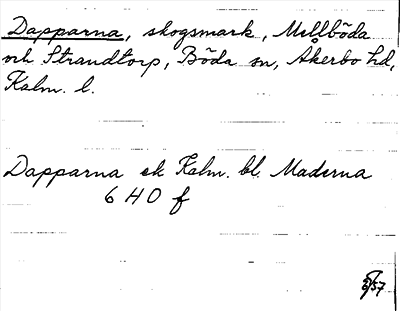 Dapparna, skogsmark, Mellböda
och Strandtorp, Böda sn, Åkerbo hd,
Kalm. l.
Dapparna ek Kalm. bl. Maderna
6 H O f